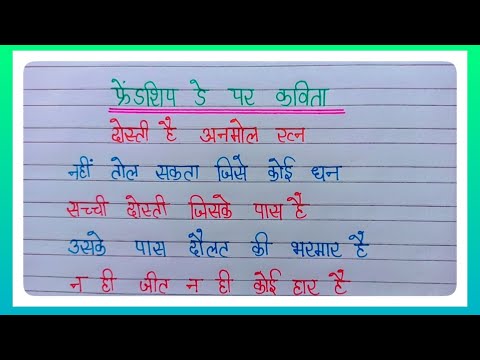 फ्रेंडशिप डे पर कविता
दोस्ती है अनमोल रत्न
नहीं तोल सकता जिसे कोई धन
सच्ची दोस्ती जिसके पास है
उसके पास दौलत की भरमार है
न ही जीत न ही कोई हार है